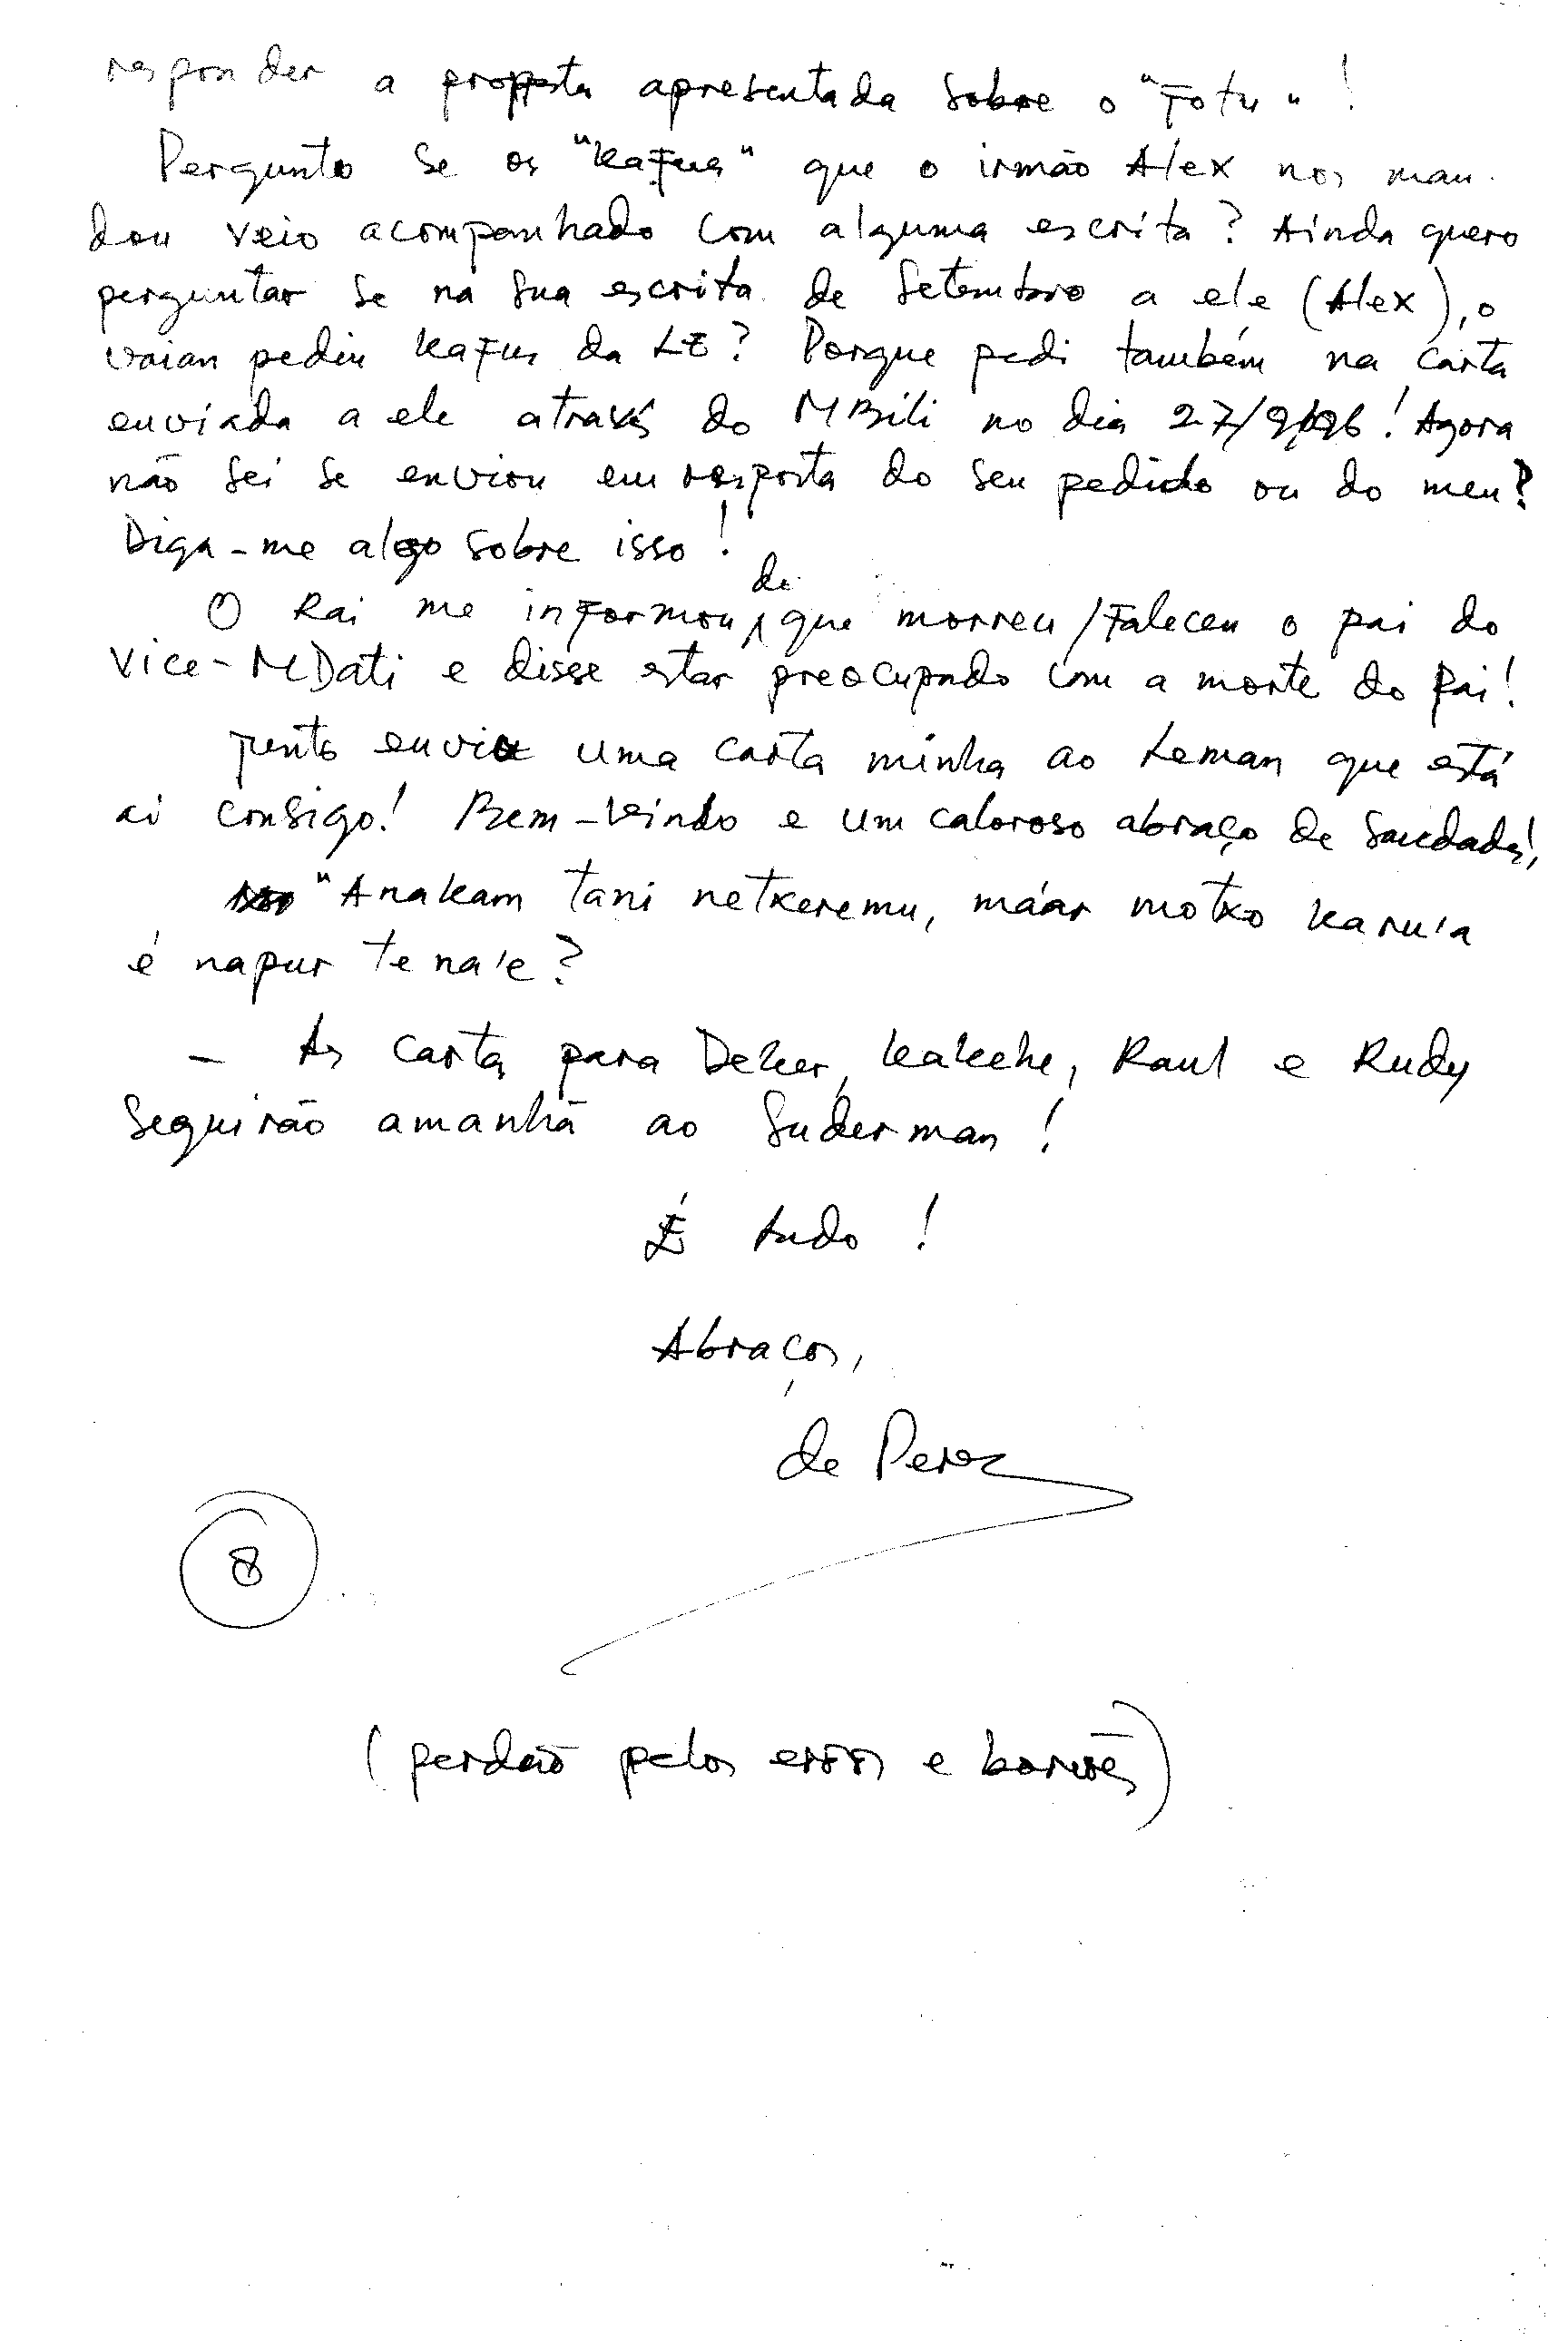 responder a proposta apresentada sobre o "Fotu"!
Pergunto se os "Kafus" que o irmão Alex nos man-
dou veio acompanhado com alguma escrita? Ainda quero
perguntar se na sua escrita de Setembro a ele (Alex), o
vaian pediu Kafus da LE? Porque pedi também na carta
enviada a ele através do MBili no dia 27/9/96! Agora
não sei se enviou em resposta do seu pedido ou do meu?
Diga-me algo sobre isso!
O Rai me informou de que morreu/faleceu o pai do
Vice-MDati e disse estar preocupado com a morte do pai!
Junto envio uma carta minha ao Leman que está
aí consigo! Bem-vindo e um caloroso abraço de saudades!,
"Anakam tani netxeremu, máar motxo karu'a
é napur te na'e?
- As cartas para Deker, Kakehe, Raul e Rudy
seguirão amanhã ao Suderman!
É tudo!
Abraços,
de Perez
8
(perdão pelos erros e borrões)